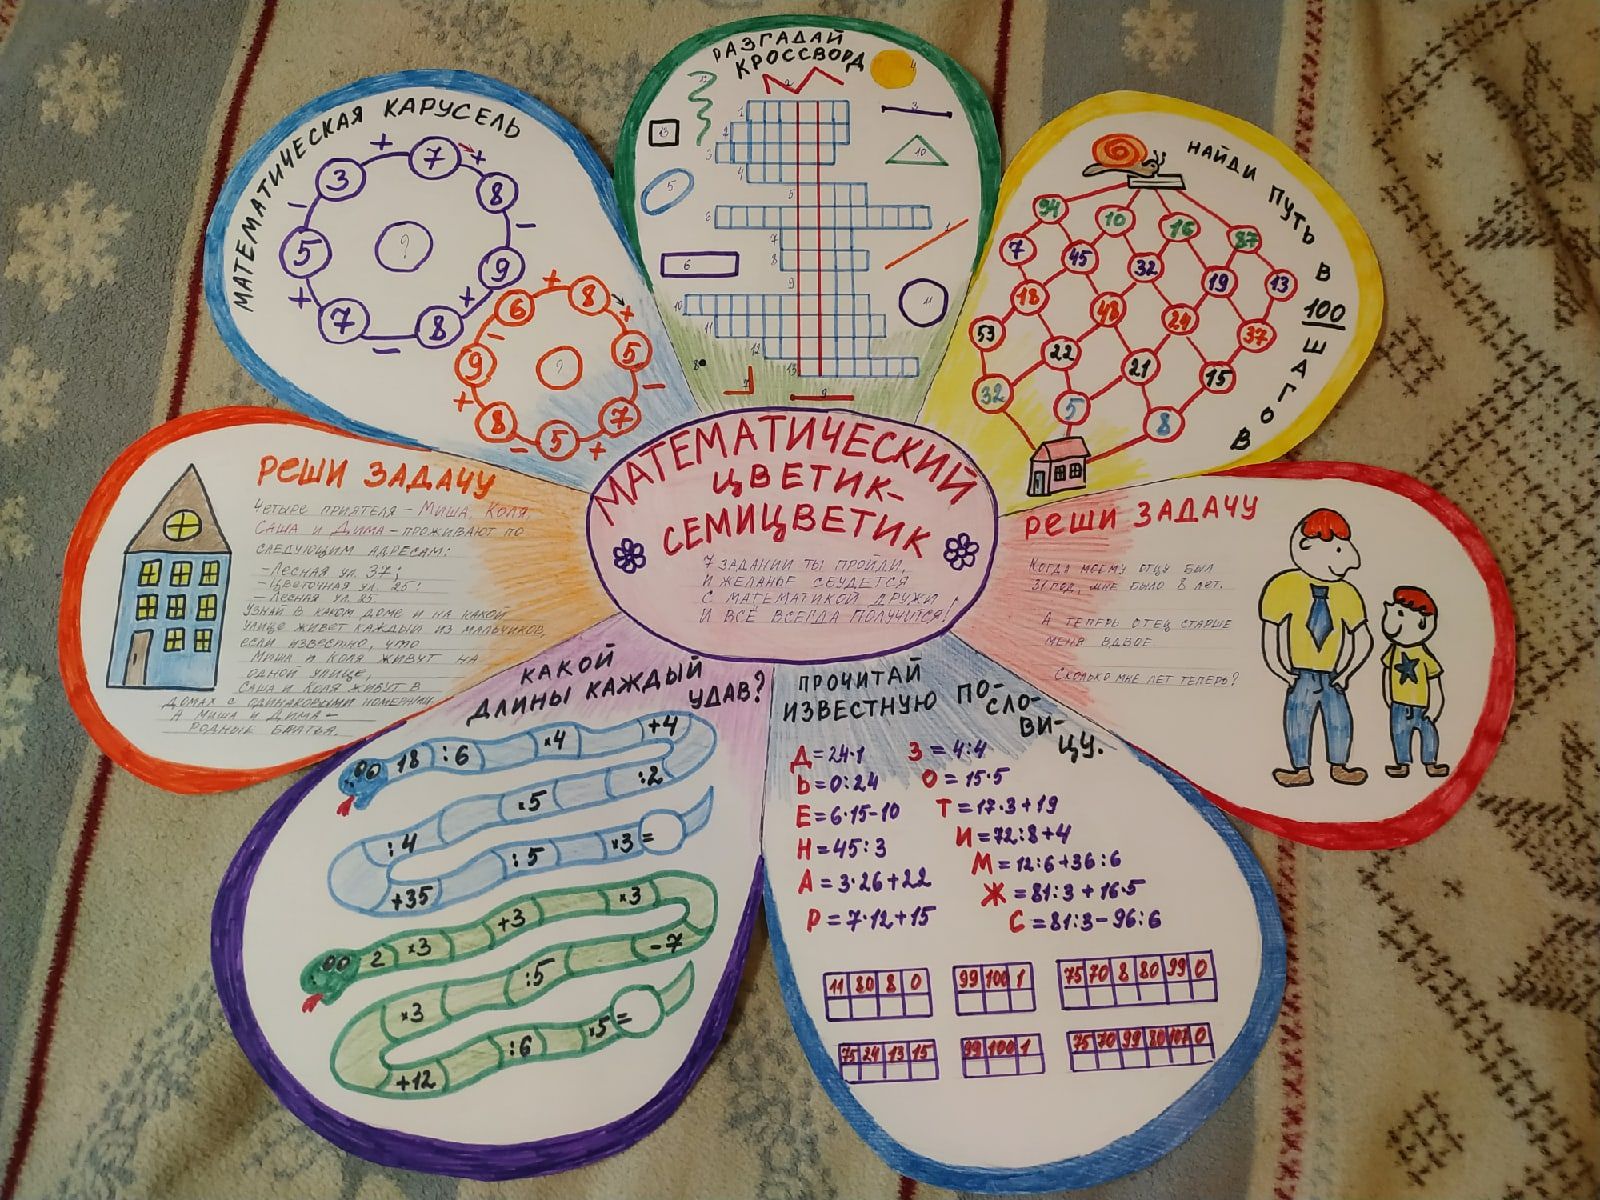 РАЗГАДАЙ
КРОССВОРД
2
4
12
13
3
10
5
6
1
11
8
7
9
1
2
3
4
5
6
7
8
9
10
11
12
13
МАТЕМАТИЧЕСКАЯ КАРУСЕЛЬ
+ 7 +
3 8
- -
5 ? 9
+ +
7 - 8
+ 8 +
6 5
- -
9 ? 7
+ +
8 - 5
НАЙДИ ПУТЬ В 100 ШАГОВ
94 10 16 87
7 45 32 19 13
18 48 24 37
53 22 21 15
32 5 8
МАТЕМАТИЧЕСКИЙ
ЦВЕТИК-
СЕМИЦВЕТИК
7 ЗАДАНИЙ ТЫ ПРОЙДИ,
И ЖЕЛАНЬЕ СБУДЕТСЯ
С МАТЕМАТИКОЙ ДРУЖИ
И ВСЁ ВСЕГДА ПОЛУЧИТСЯ!
РЕШИ ЗАДАЧУ
Четыре приятеля - Миша, Коля
Саша и Дима - проживают по
следующим адресам:
- Лесная ул. 37;
- Цветочная ул. 25;
- Лесная ул. 25.
Узнай в каком доме и на какой
улице живет каждый из мальчиков,
если известно, что
Миша и Коля живут на
одной улице,
Саша и Коля живут в
домах с одинаковыми номерами.
А Миша и Дима -
родные братья.
РЕШИ ЗАДАЧУ
Когда моему отцу был
31 год, мне было 8 лет.
А теперь отец старше
меня вдвое.
Сколько мне лет теперь?
КАКОЙ
ДЛИНЫ КАЖДЫЙ
УДАВ?
18 :6 ×4 +4
:2
×5
:4
+35 :5 ×3=
2 ×3 +3 ×3
-7
:5
×3
+12 :6 ×5=
ПРОЧИТАЙ
ИЗВЕСТНУЮ ПО-
СЛО-
ВИ-
ЦУ.
Д=24·1 З=4:4
Ь=0:24 О=15·5
Е=6·15-10 Т=17·3+19
Н=45:3 И=72:8+4
А=3·26+22 М=12:6+36:6
Р=7·12+15 Ж=81:3+16·5
С=81:3-96:6
11 80 8 0
99 100 1
75 70 8 80 99 0
75 24 13 15
99 100 1
75 70 99 80 107 0